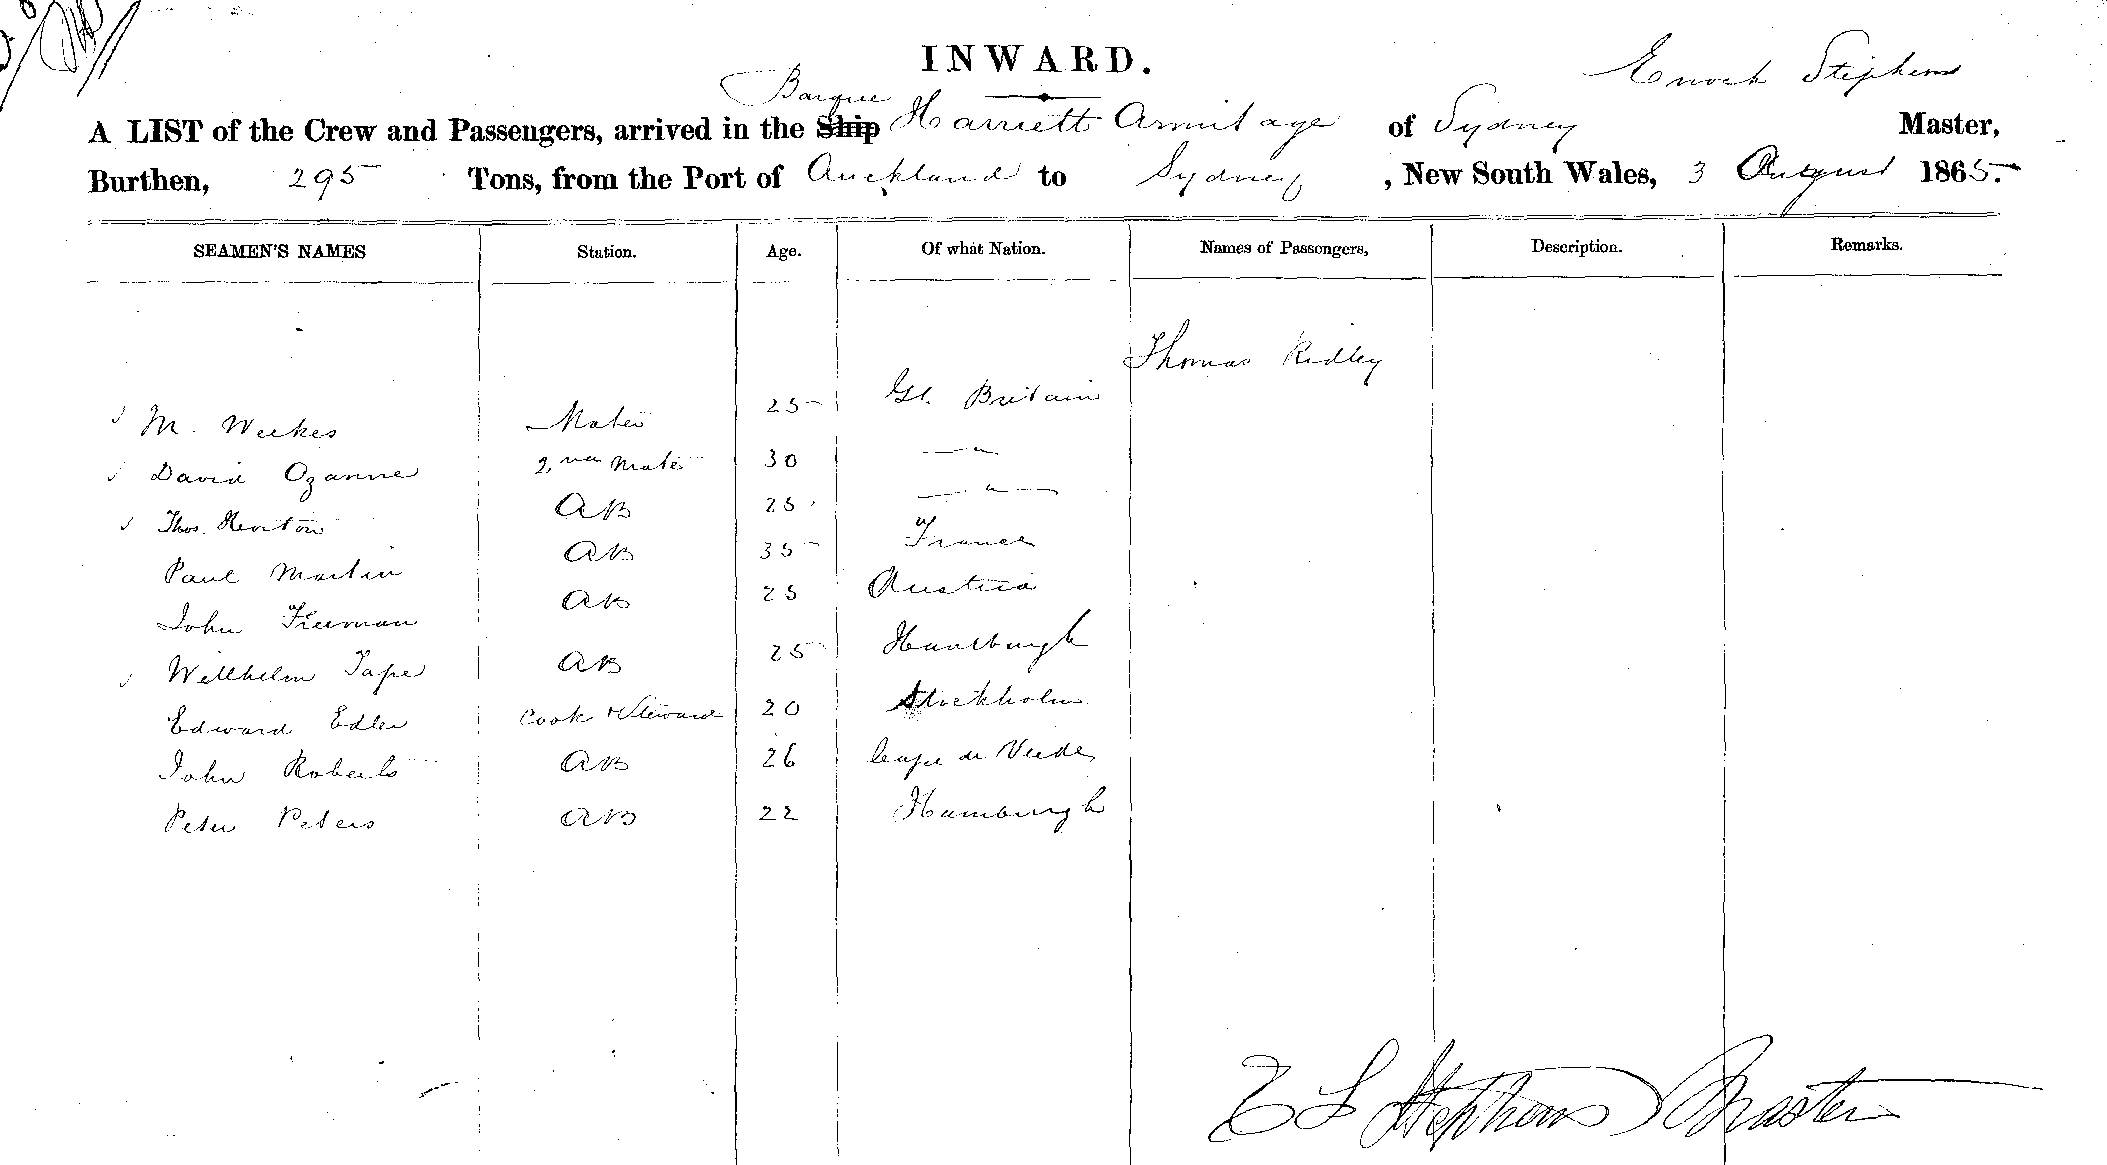 INWARD.
Enoch Stephens
Barque
A LIST of the Crew and Passengers, arrived in the Ship Harriett Armitage of Sydney Master,
Burthen, 295 Tons, from the Port of Auckland to Sydney, New South Wales, 3 August 1865.
SEAMEN'S NAMES Station. Age. Of what Nation. Names of Passengers, Description. Remarks.
Thomas Ridley
M. Weekes Mate 25 Gt. Britain
David Ozanne 2nd Mate 30 — " —
Thos. AB 25 — " —
Paul Martin AB 35 France
John Freeman AB 25 Austria
Willhelm Tape AB 25 Hamburgh
Edward Edler Cook & Steward 20 Stockholm
John Roberts AB 26 Cape de Verdes
Peter Peters AB 22 Hamburgh
E S Stephens Master